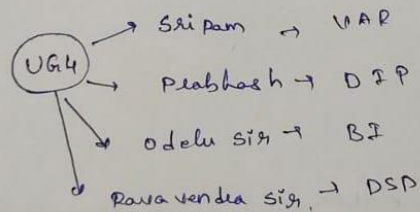 UG4
Sripam → VAR
Prabhash → DIP
odelu sir → BI
Ravavendra sir → DSD